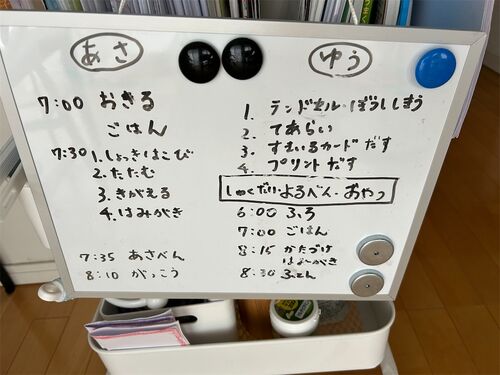 あさ
7:00 おきる
ごはん
7:30 1. しょっきはこび
2. たたむ
3. きがえる
4. はみがき
7:35 あさべん
8:10 がっこう
ゆう
1. ランドセル・ぼうししまう
2. てあらい
3. すまいるカードだす
4. プリントだす
しゅくだい よるべん・おやつ
6:00 ふろ
7:00 ごはん
8:15 かたづけ
はみがき
8:30 ふとん